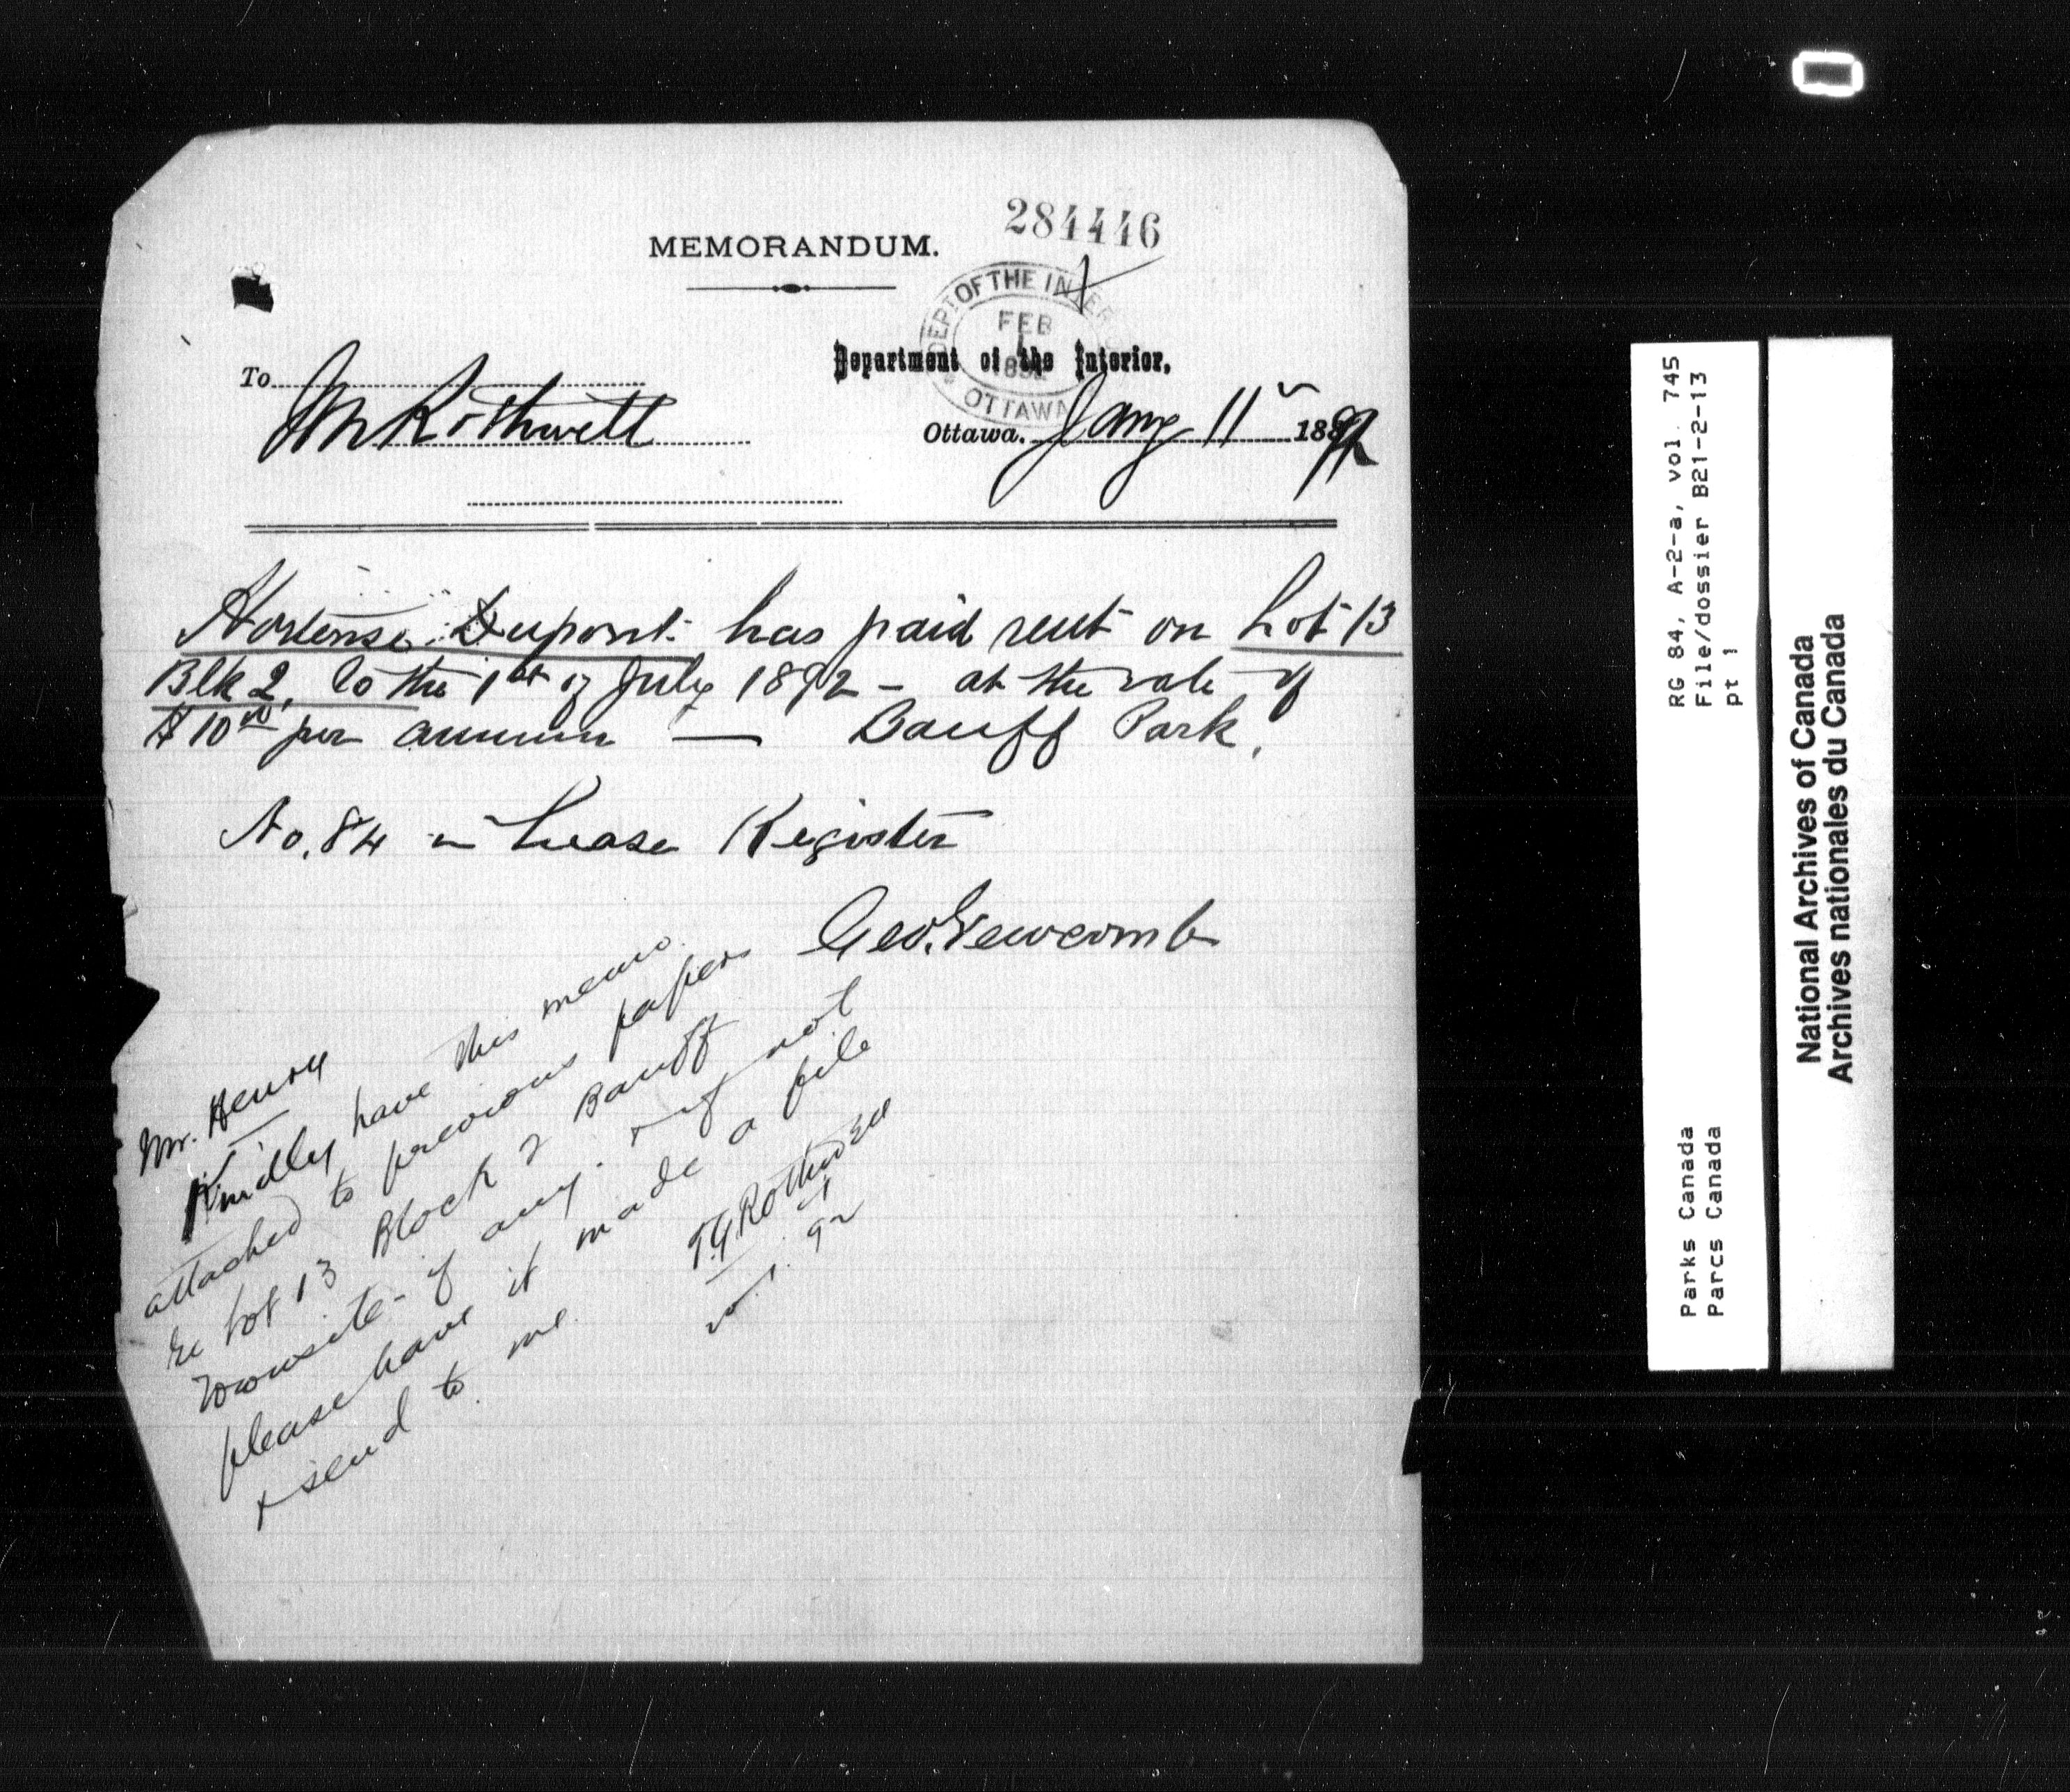 284446
MEMORANDUM.
DEPT OF THE INTERIOR
FEB
1
1892
OTTAWA
Department of the Interior.
To
Mr Rothwell
Ottawa. Jany 11 1892
Hortense Dupont has paid rent on Lot 13
Blk 2, to the 1st of July 1892 - at the rate of
$10.00 per annum — Banff Park.
No. 84 in Lease Register
Geo. Newcomb
Mr. Henry
Kindly have this memo.
attached to previous papers
re Lot 13 Block 2 Banff
Townsite - if any. & if not
please have it made a file
& send to me.
T.G. Rothwell
92
RG 84, A-2-a, vol. 745
File/dossier B21-2-13
pt 1
Parks Canada
Parcs Canada
National Archives of Canada
Archives nationales du Canada